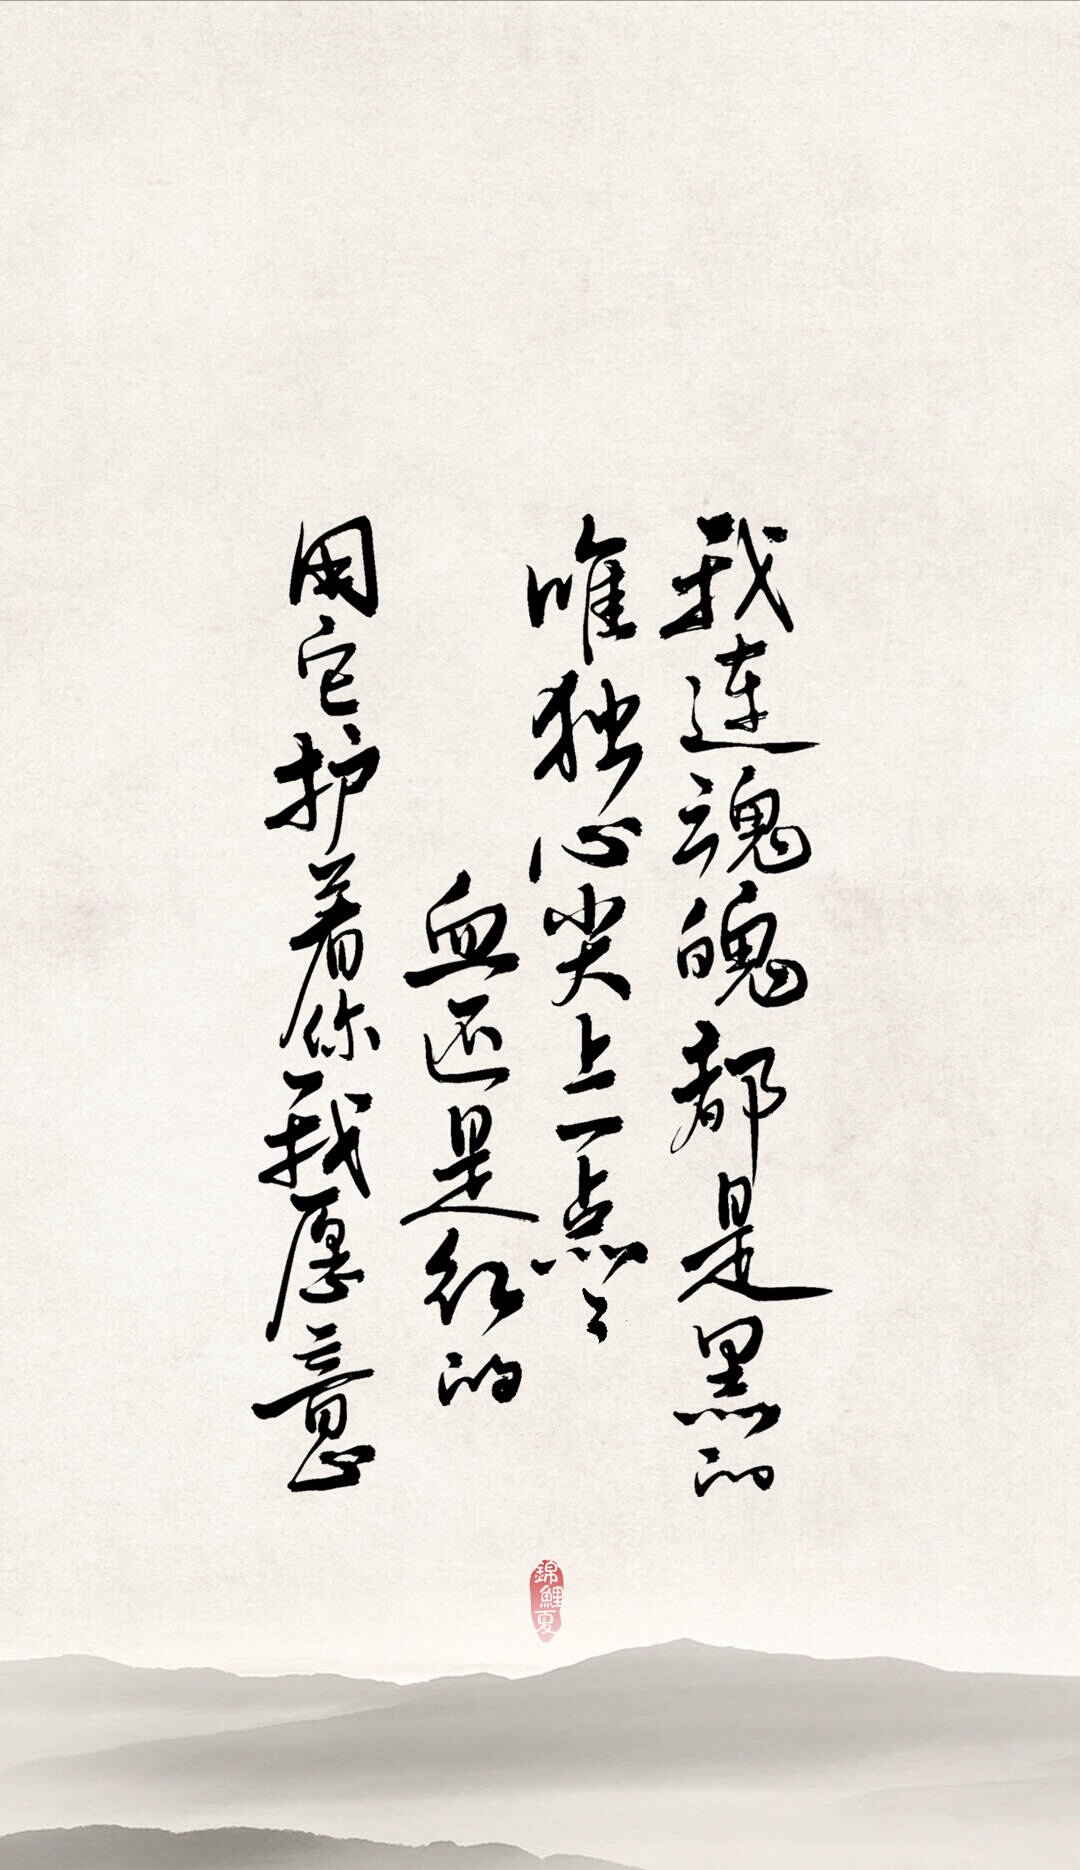 我连魂魄都是黑的
唯独心尖上一点点
血还是红的
用它护着你我愿意
錦鯉夏